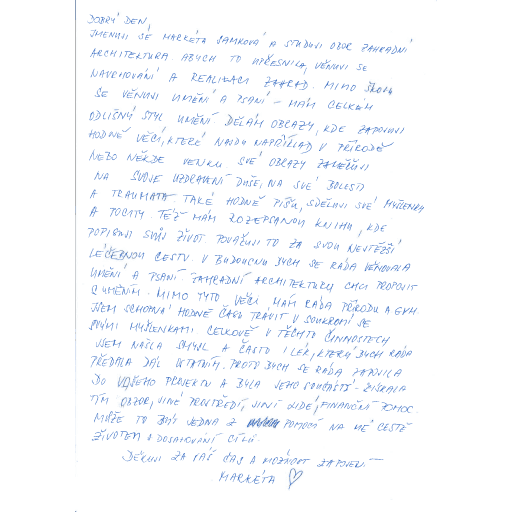 DOBRÝ DEN,
JMENUJI SE MARKÉTA SAMKOVÁ A STUDUJI OBOR ZAHRADNÍ
ARCHITEKTURA ABYCH TO UPŘESNILA, VĚNUJI SE
NAVRHOVÁNÍ A REALIZACI ZAHRAD. MIMO ŠKOLU
SE VĚNUJI UMĚNÍ A PSANÍ – MÁM CELKEM
ODLIŠNÝ STYL UMĚNÍ DĚLÁM OBRAZY, KDE ZAPOJUJI
HODNĚ VĚCÍ, KTERÉ NAJDU NAPŘÍKLAD V PŘÍRODĚ
NEBO NĚKDE VENKU. SVÉ OBRAZY ZAMĚŘUJI
NA SVOJE UZDRAVENÍ DUŠE, NA SVÉ BOLESTI
A TRAUMATA. TAKÉ HODNĚ PÍŠU, SDĚLUJI SVÉ MYŠLENKY
A POCITY. TÉŽ MÁM ROZEPSANOU KNIHU, KDE
POPISUJI SVŮJ ŽIVOT POVAŽUJI TO ZA SVOU NEJTĚŽŠÍ
LÉČEBNOU CESTU. V BUDOUCNU BYCH SE RÁDA VĚNOVALA
UMĚNÍ A PSANÍ ZAHRADNÍ ARCHITEKTURU CHCI PROPOJIT
S UMĚNÍM. MIMO TYTO VĚCI MÁM RÁDA PŘÍRODU A GYM.
JSEM SCHOPNÁ HODNĚ ČASU TRÁVIT V SOUKROMÍ SE
SVÝMI MYŠLENKAMI CELKOVĚ V TĚCHTO ČINNOSTECH
JSEM NAŠLA SMYSL A ČASTO I LÉK, KTERÝ BYCH RÁDA
PŘEDALA DÁL OSTATNÍM. PROTO BYCH SE RÁDA ZAPOJILA
DO VAŠEHO PROJEKTU A BYLA JEHO SOUČÁSTÍ – ZÍSKALA
TÍM OBZOR, JINÉ PROSTŘEDÍ, JINÍ LIDÉ, FINANČNÍ POMOC.
MŮŽE TO BÝT JEDNA Z POMOCÍ NA MÉ CESTĚ
ŽIVOTEM A DOSAHOVÁNÍ CÍLŮ.
DĚKUJI ZA VÁŠ ČAS A MOŽNOST ZAPOJENÍ.
MARKÉTA ♡